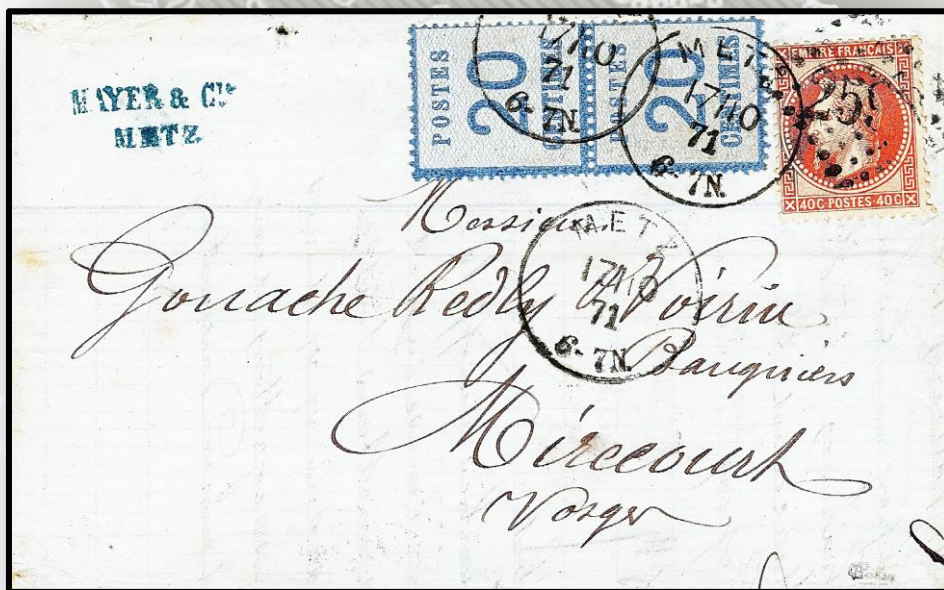 MAYER & Cie
METZ
POSTES
20
CENTIMES
POSTES
20
CENTIMES
17/10
71
6-7N.
METZ
17/10
71
6-7N.
EMPIRE FRANÇAIS
259
40C POSTES 40C
Messieurs
METZ
17/10
71
6-7N.
Gouache Redly & Voirin
Banquiers
Mirecourt
Vosges